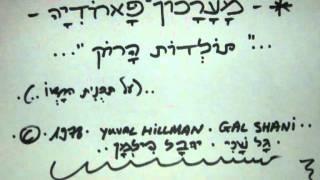 -* מַעֲרָכוֹן פָּארוֹדְיָה -
.."תּוֹלְדוֹת הָרוֹק"..
..(על תַּבְנִית
.© .1978. YUVAL HILLMAN . GAL SHANI..
גַּל שָׁנִי . יוּבָל הִילְמָן..